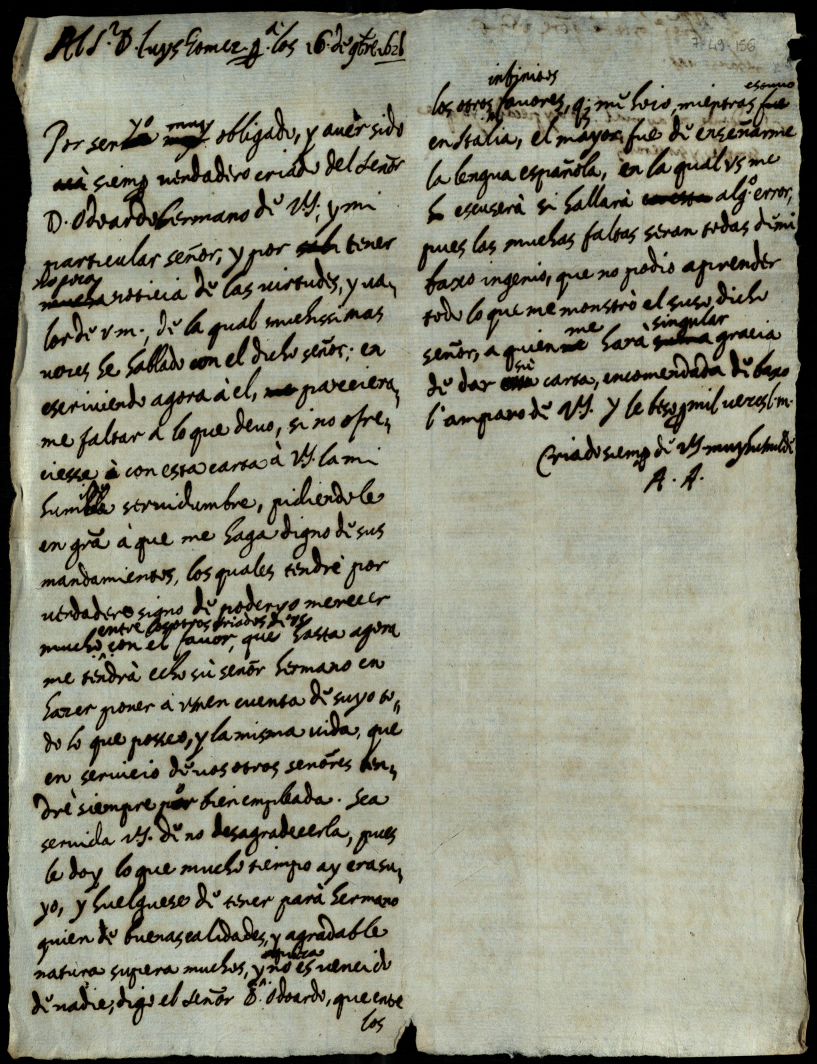 Al S.r D. Luys Gomez. p.a los 16. de 9bre. 1628
7-49-156
Por ser yo muy obligado, y auer sido
siemp verdadero criado del Señor
D. Odoardo hermano de VS; y mi
particular señor, y por tener
no poca noticia de las virtudes, y va,
lor de vm; de la qual muchissimas
vezes he hablado con el dicho señor; en
escriviendo agora à el, pareciera,
me faltar a lo que devo, si no ofre,
ciesse con esta carta à VS. la mi
humilde servidumbre, pidiendole
en grã à que me haga digno de sus
mandamientos, los quales tendrè por
verdadero signo de poder yo merecer
entre los otros criados de VS
mucho, con el favor, que hasta agora
me tendrà echo sù señor hermano en
hazer poner à vm en cuenta de suyo to,,
do lo que posseo, y la misma vida, que
en servicio de vosotros señores ten,
drè siempre por bien empleada. Sea
servida VS. de no desagradecerla, pues
le doy lo que mucho tiempo ay era su,
yo, y huelguese de tener parà hermano
quien de buenas calidades, y agradable
natura supera muchos, y no es vencido
de nadie; digo el Señor D. Odoardo, que entre
los
infinitos
los otros favores, q; mi hizo, mientras estuvo
en Italia, el mayor fue de enseñarme
la lengua española, en la qual VS me
escuserà si hallarà alg.o error,
pues las muchas faltas seran todas de mi
baxo ingenio, que no podio aprender
todo lo que me monstrò el suso dicho
señor, a quien me harà singular gracia
de dar sù carta, encomendada de baxo
l'amparo de VS. Y le beso mil vezes l. m.
Criado siemp de VS. muy humilde
A. A.